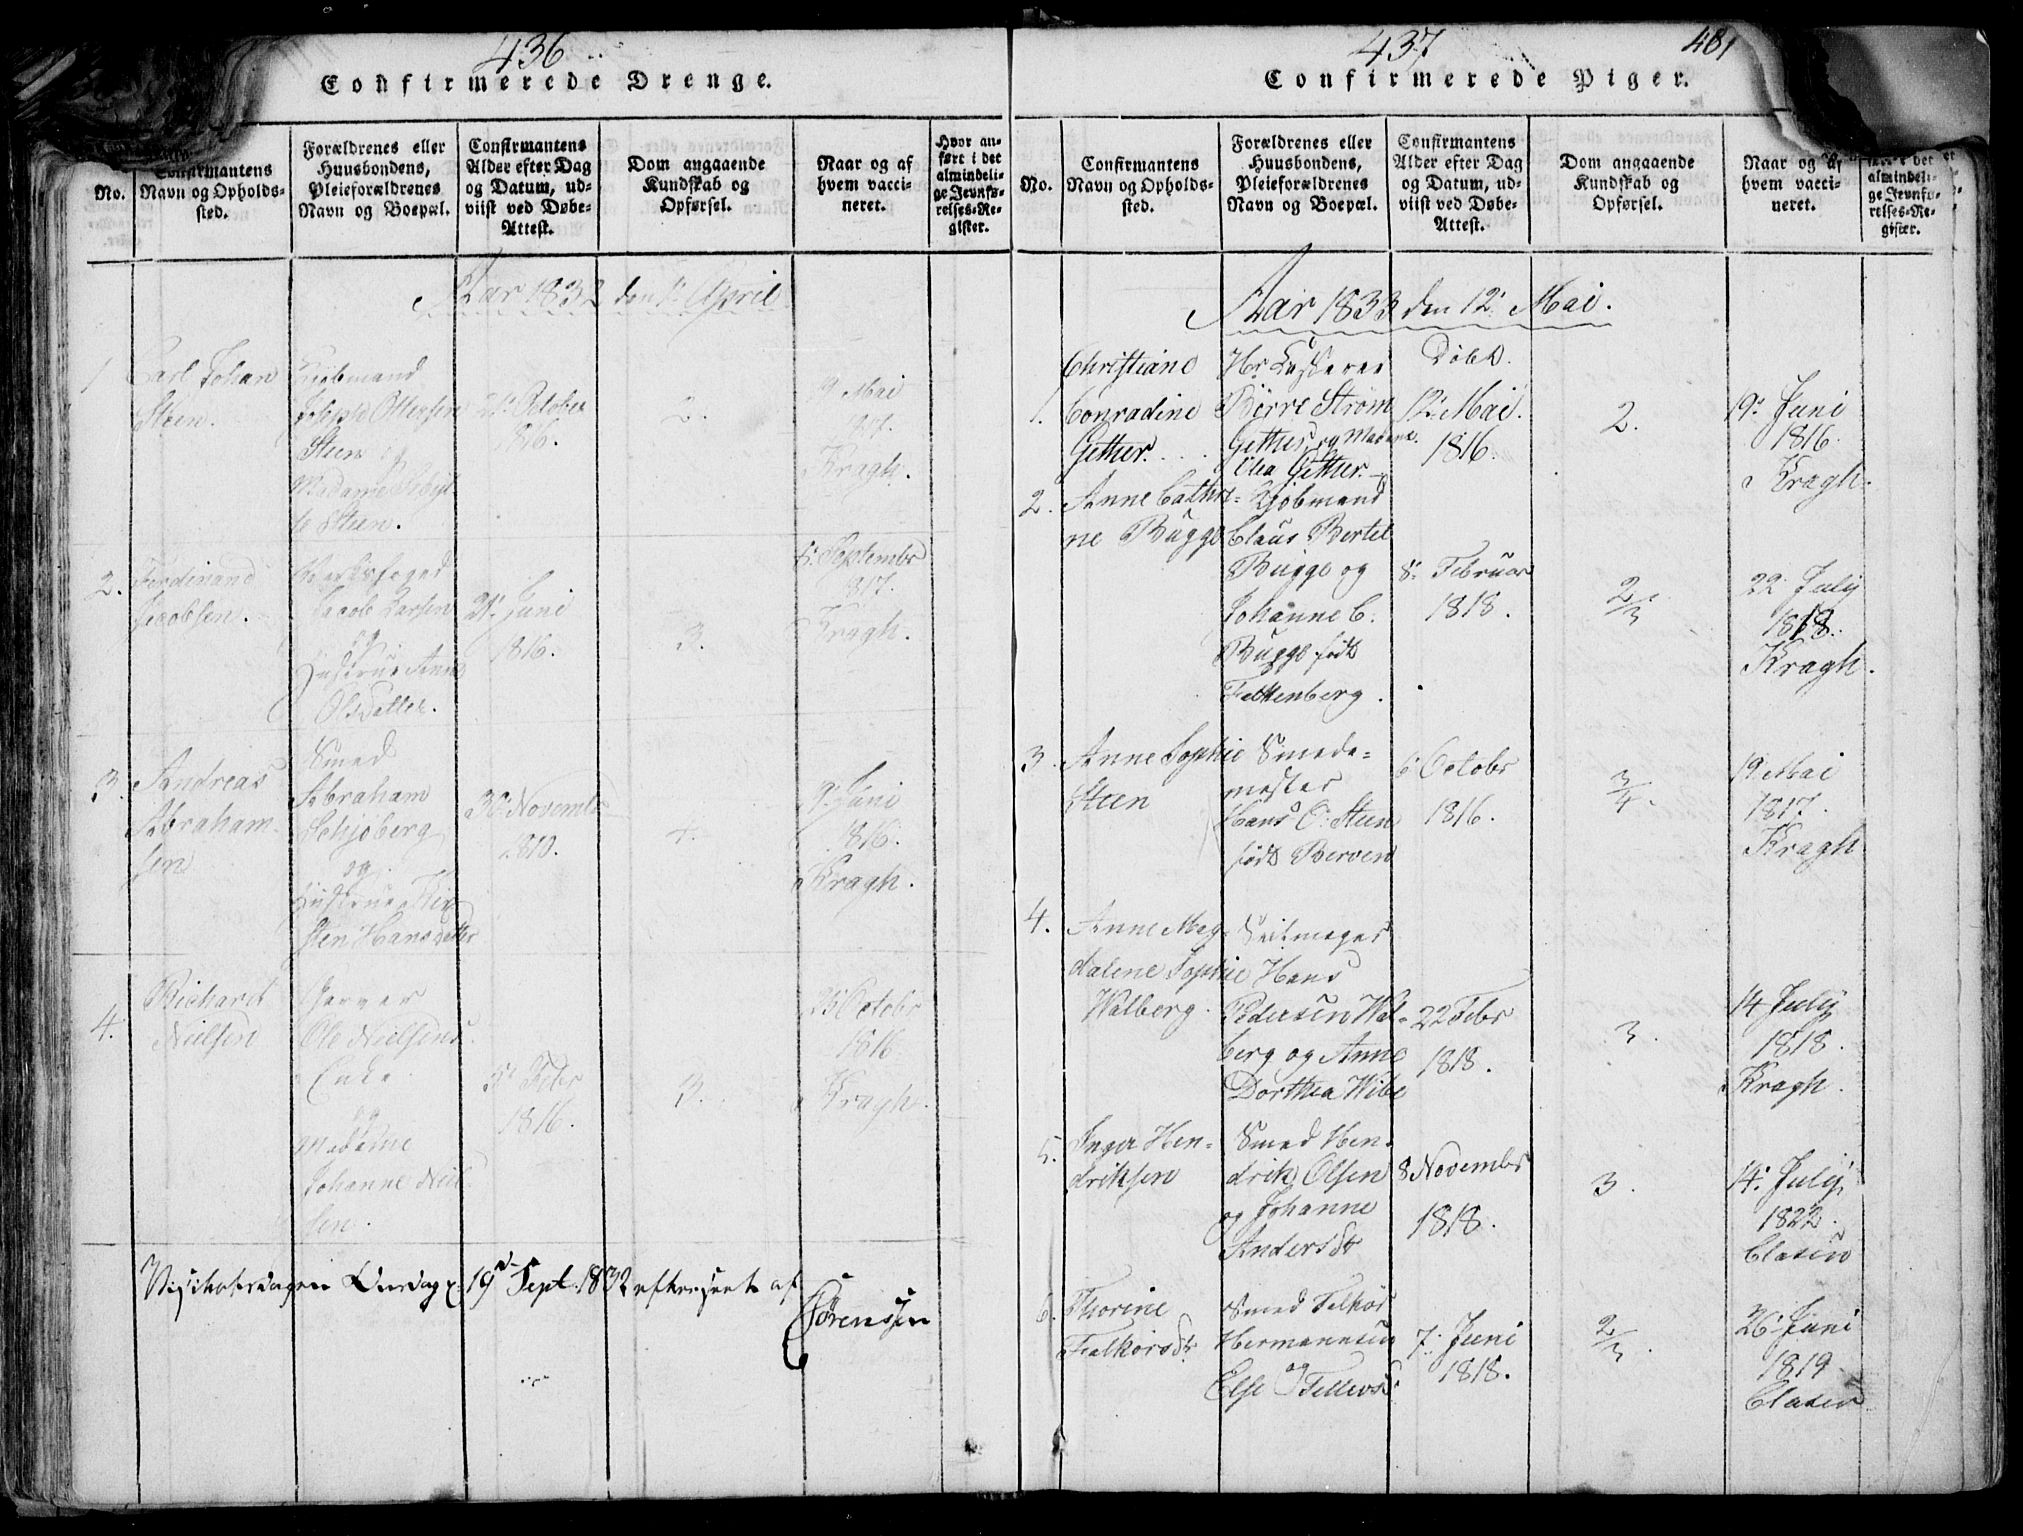 436
Confirmerede Drenge.
No.
Confirmantens Navn og Opholds-sted.
Forældrenes eller Huusbondens, Pleieforældrenes Navn og Boepæl.
Confirmantens Alder efter Dag og Datum, ud-viist ved Døbe-Attest.
Dom angaaende Kundskab og Opførsel.
Naar og af hvem vacci-neret.
Hvor an-ført i det almindeli-ge Jevnfø-relses-Re-gister.
Aar 1832 den 1. April
1
Carl Johan
Steen.
Kjøbmand
Ottersen
Steen og
Madame
Steen.
21. October
1816.
2.
9 Mai
1817.
Kragh.
2.
Ferdinand
Jacobsen.
Jacob Larsen
og
Hustrue Anne
Olsdatter.
21. Juni
1816.
3.
6. Septembr
1817.
Kragh.
3.
Andreas
Abraham-
sen
Smed
Abraham
Schjøberg
og
Hustrue Kir
sten Hansdatter
30. Novembr
1810.
4.
9. Juni
1816.
Kragh.
4.
Richard
Nielsen
Garver
Ole Nielsens
Enke
og
Madame
Johanne Niel
sen.
Febr
1816.
3.
25 Octobr
1816
Kragh.
Visitatsdagen Onsdag 19d Sept. 1832 efterseet af
Sørenssen
437
481
Confirmerede Piger.
No.
Confirmantens Navn og Opholds-sted.
Forældrenes eller Huusbondens, Pleieforældrenes Navn og Boepæl.
Confirmantens Alder efter Dag og Datum, ud-viist ved Døbe-Attest.
Dom angaaende Kundskab og Opførsel.
Naar og af hvem vacci-neret.
ført i det almindeli-ge Jevnfø-relses-Re-gister.
Aar 1833 den 12. Mai.
1.
Christiane
Conradine
Gether.
Hr.
Børre Strøm
Gether og Madame
Elea Gether.
Døbt.
12. Mai.
1816.
2.
19. Juni
1816.
Kragh.
2.
Anne Cathri-
ne Bugge
Kjøbmand
Claus Bertel
Bugge og
Johanne C.
Bugge født
Falkenberg.
8. Februar
1818.
2/3.
22. July
1818.
Kragh.
3.
Anne Sophie
Steen
Smede-
mester
Hans O. Steen
født Berven
6. Octobr
1816.
3/4.
19. Mai
1817.
Kragh
4.
Anne Mag-
dalene Sophie
Walberg.
Seilmager
Hans
Pedersen Wal-
berg og Anne
Dorthea Wibe
22 Febr
1818.
3.
14 July
1818.
Kragh.
5.
Inger Hen-
driksen
Smed Hen-
drik Olsen
og Johanne
Andersdtr
8 Novembr
1818.
3.
14. July
1822.
Clasen
6.
Thorine
Falkorsdtr.
Smed Falkor
Hermannsen
og
Else Tellevsd.
7. Juni
1818.
2/3.
26. Juni
1819
Clasen